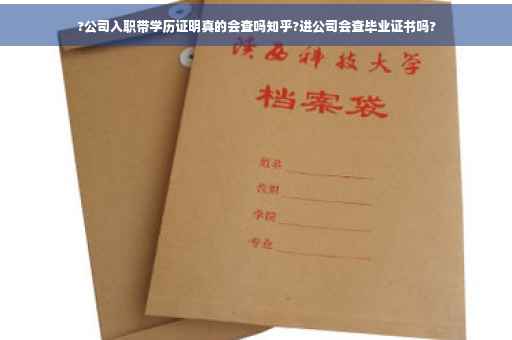 ?公司入职带学历证明真的会查吗知乎?进公司会查毕业证书吗?
陕西科技大学
档案袋
姓名
性别
学院
专业